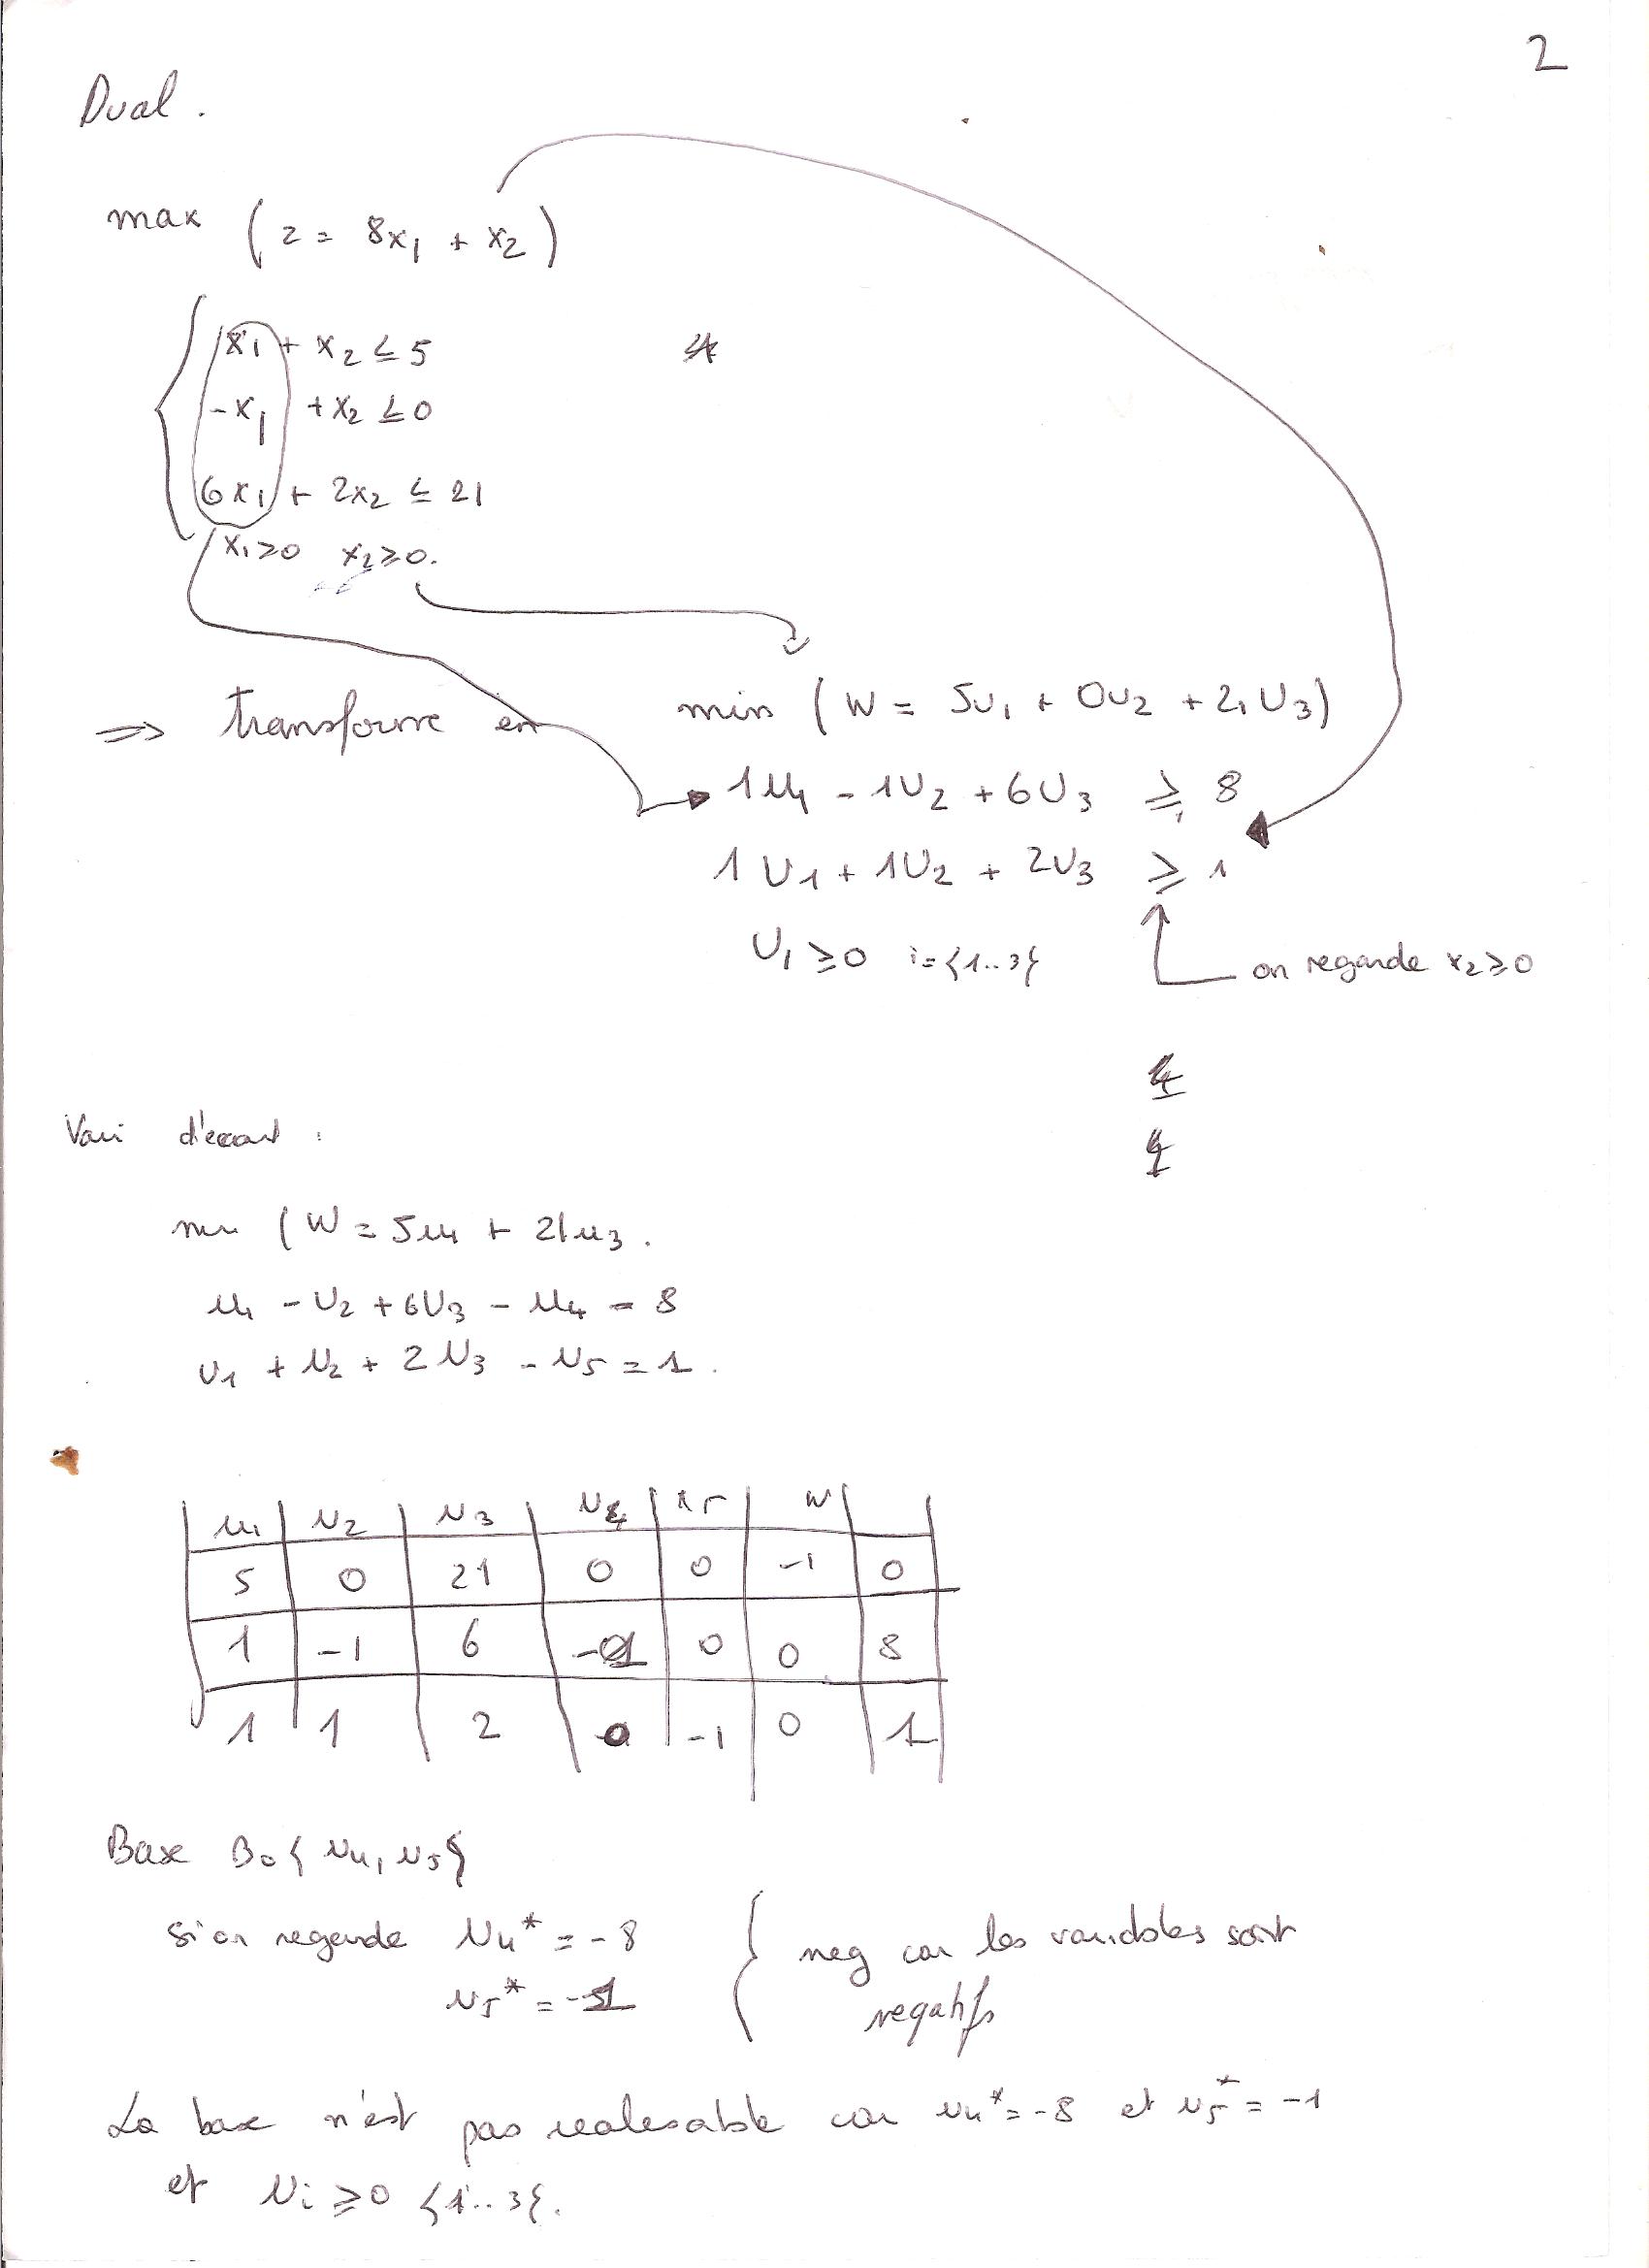 2
Dual.
max (z = 8x₁ + x₂)
x₁ + x₂ ≤ 5
-x₁ + x₂ ≤ 0
6x₁ + 2x₂ ≤ 21
x₁ ≥ 0 x₂ ≥ 0.
⇒ transforme en min (W = 5u₁ + 0u₂ + 21U₃)
1u₁ - 1U₂ + 6U₃ ≥ 8
1U₁ + 1U₂ + 2U₃ ≥ 1
U₁ ≥ 0 i = {1..3}
on regarde x₂ ≥ 0
Vari d'ecart :
min (W = 5u₁ + 21u₃.
u₁ - U₂ + 6U₃ - u₄ = 8
U₁ + u₂ + 2u₃ - u₅ = 1.
u₁ u₂ u₃ u₄ u₅ W
5 0 21 0 0 -1 0
1 -1 6 -1 0 0 8
1 1 2 0 -1 0 1
Base B₀{u₄, u₅}
si on regarde u₄* = -8
u₅* = -1
neg car les variables sont
negatifs
La base n'est pas realisable car u₄* = -8 et u₅* = -1
et Ui ≥ 0 {1..3}.